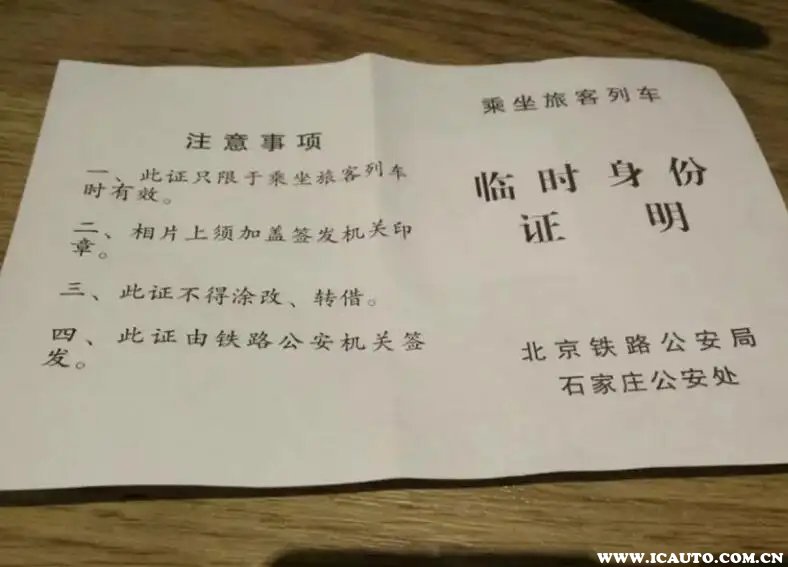 注意事项
一、此证只限于乘坐旅客列车
时有效。
二、相片上须加盖签发机关印
章。
三、此证不得涂改、转借。
四、此证由铁路公安机关签
发。
乘坐旅客列车
临时身份
证明
北京铁路公安局
石家庄公安处
WWW.ICAUTO.COM.CN